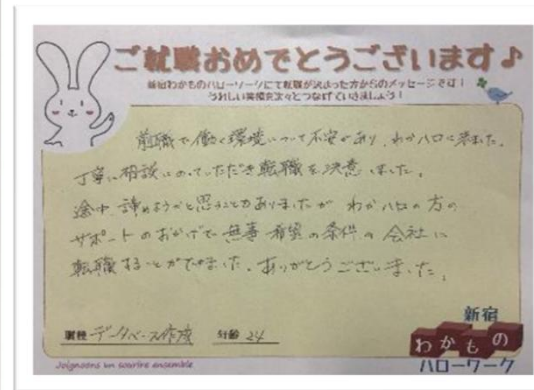 ご就職おめでとうございます♪
新宿わかものハローワークにて就職が決まった方からのメッセージです！
うれしい笑顔を次々とつなげていきましょう！
前職で働く環境について不安があり、わかハロに来ました。
丁寧に相談にのっていただき転職を決意しました。
途中、諦めようかと思うこともありましたが わかハロの方の
サポートのおかげで無事希望の条件の会社に
転職することができました。ありがとうございました。
職種 データベース作成 年齢 24
Joignoons un sourire ensemble
新宿
わかもの
ハローワーク